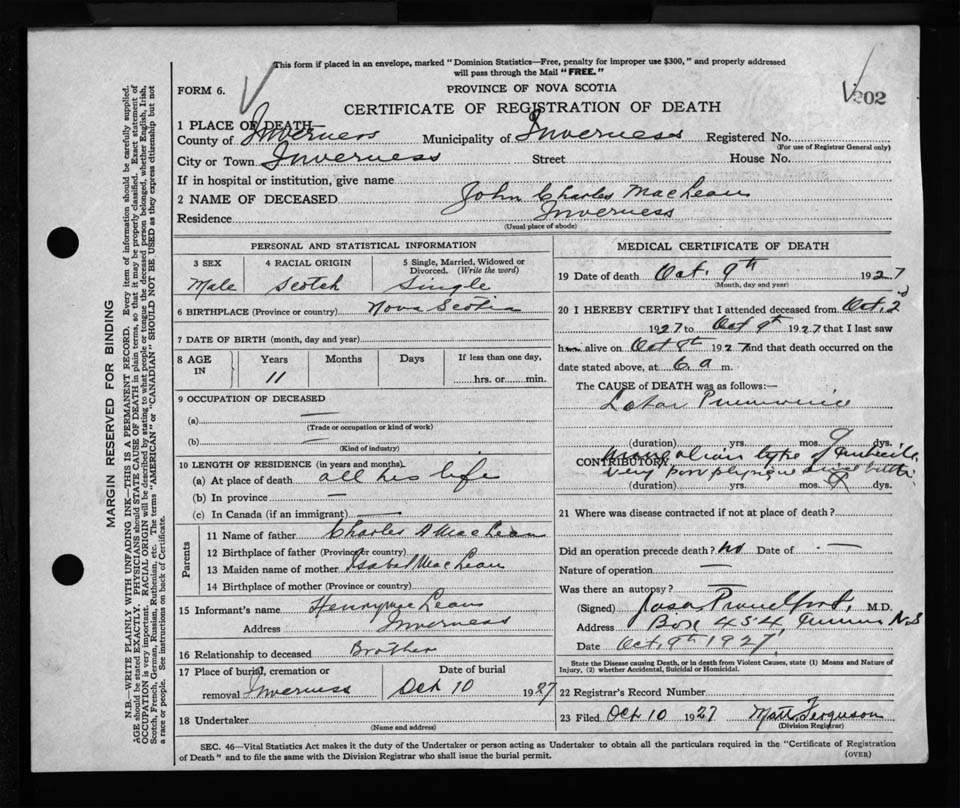 This form if placed in an envelope, marked "Dominion Statistics—Free, penalty for improper use $300," and properly addressed
will pass through the Mail "FREE."
FORM 6.
PROVINCE OF NOVA SCOTIA
CERTIFICATE OF REGISTRATION OF DEATH
202
1 PLACE OF DEATH
County of Inverness Municipality of Inverness Registered No.
(For use of Registrar General only)
City or Town Inverness Street House No.
If in hospital or institution, give name
2 NAME OF DECEASED John Charles MacLean
Residence Inverness
(Usual place of abode)
PERSONAL AND STATISTICAL INFORMATION
3 SEX 4 RACIAL ORIGIN 5 Single, Married, Widowed or
Divorced. (Write the word)
Male Scotch Single
6 BIRTHPLACE (Province or country) Nova Scotia
7 DATE OF BIRTH (month, day and year)
8 AGE IN Years Months Days If less than one day,
11 hrs. or min.
9 OCCUPATION OF DECEASED
(a) —
(Trade or occupation or kind of work)
(b) —
(Kind of industry)
10 LENGTH OF RESIDENCE (in years and months)
(a) At place of death all his life
(b) In province —
(c) In Canada (if an immigrant) —
Parents
11 Name of father Charles A MacLean
12 Birthplace of father (Province or country)
13 Maiden name of mother Isabel MacLean
14 Birthplace of mother (Province or country)
15 Informant's name Henry MacLean
Address Inverness
16 Relationship to deceased Brother
17 Place of burial, cremation or Date of burial
removal Inverness Oct 10 1927
18 Undertaker
(Name and address)
MEDICAL CERTIFICATE OF DEATH
19 Date of death Oct. 9th 1927
(Month, day and year)
20 I HEREBY CERTIFY that I attended deceased from Oct. 2d
1927 to Oct 9th 1927 that I last saw
h alive on Oct 8th 1927 and that death occurred on
date stated above, at 6 a m.
The CAUSE of DEATH was as follows:—
Lobar Pneumonia
(duration) yrs. mos. 9 dys.
CONTRIBUTORY Mongolian type of Imbecile
very poor physique since birth
(duration) yrs. mos. dys.
21 Where was disease contracted if not at place of death?
Did an operation precede death? No Date of —
Nature of operation —
Was there an autopsy? —
(Signed) Proudfoot, M.D.
Address Box 454, Inverness N.S
Date Oct. 9th 1927.
State the Disease causing Death, or in death from Violent Causes, state (1) Means and Nature of
Injury, (2) whether Accidental, Suicidal or Homicidal.
22 Registrar's Record Number
23 Filed Oct 10 1927 Matt. Ferguson
(Division Registrar)
SEC. 46—Vital Statistics Act makes it the duty of the Undertaker or person acting as Undertaker to obtain all the particulars required in the "Certificate of Registration
of Death" and to file the same with the Division Registrar who shall issue the burial permit.
(OVER)
MARGIN RESERVED FOR BINDING
N.B.—WRITE PLAINLY WITH UNFADING INK—THIS IS A PERMANENT RECORD. Every item of information should be carefully supplied.
AGE should be stated EXACTLY. PHYSICIANS should STATE CAUSE OF DEATH in plain terms, so that it may be properly classified. Exact statement of
OCCUPATION is very important. RACIAL ORIGIN will be described by stating to what people or tongue the deceased person belonged, whether English, Irish,
Scotch, French, German, Russian, Ruthenian, etc. The terms "AMERICAN" or "CANADIAN" SHOULD NOT BE USED as they express citizenship but not
a race or people. See instructions on back of Certificate.